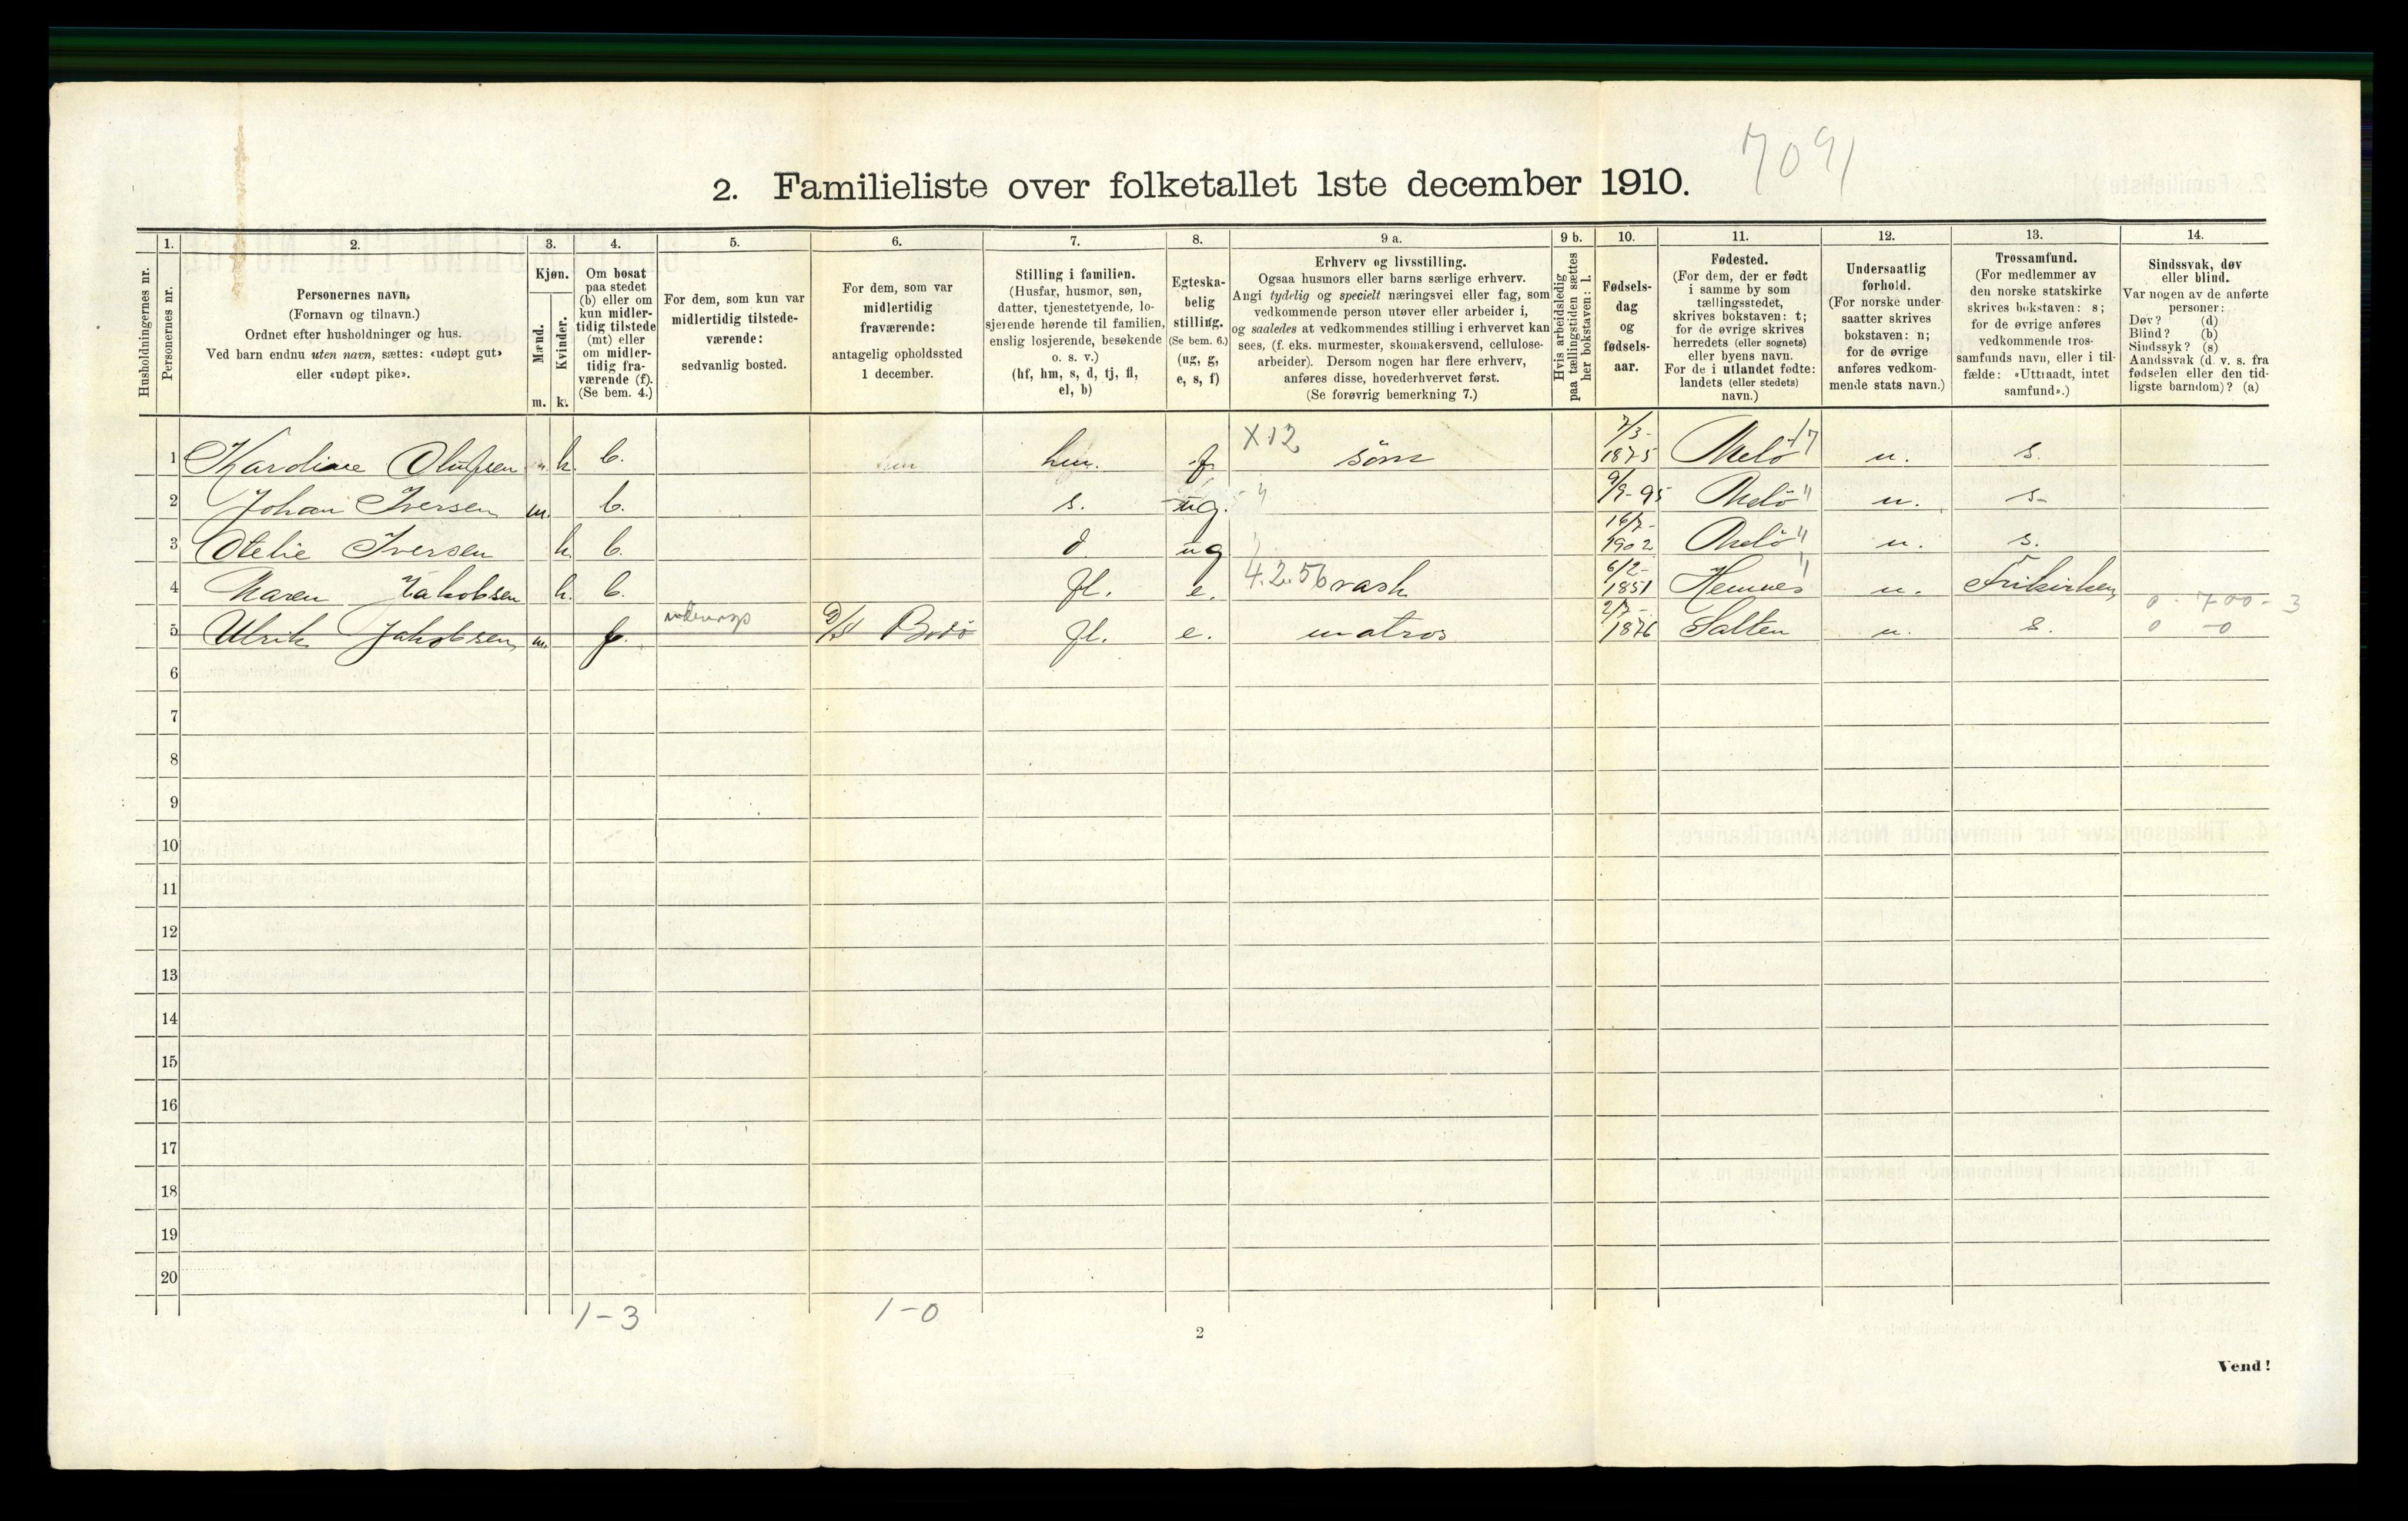 7091
2. Familieliste over folketallet 1ste december 1910.
Husholdningernes nr.
1.
Personernes nr.
2.
Personernes navn.
(Fornavn og tilnavn.)
Ordnet efter husholdninger og hus.
Ved barn endnu uten navn, sættes: «udøpt gut»
eller «udøpt pike».
3.
Kjøn.
Mænd.
Kvinder.
m. k.
4.
Om bosat
paa stedet
(b) eller om
kun midler-
tidig tilstede
(mt) eller
om midler-
tidig fra-
værende (f).
(Se bem. 4.)
5.
For dem, som kun var
midlertidig tilstede-
værende:
sedvanlig bosted.
6.
For dem, som var
midlertidig
fraværende:
antagelig opholdssted
1 december.
7.
Stilling i familien.
(Husfar, husmor, søn,
datter, tjenestetyende, lo-
sjerende hørende til familien,
enslig losjerende, besøkende
o. s. v.)
(hf, hm, s, d, tj, fl,
el, b)
8.
Egteska-
belig
stilling.
(Se bem. 6.)
(ug, g,
e, s, f)
9 a.
Erhverv og livsstilling.
Ogsaa husmors eller barns særlige erhverv.
Angi tydelig og specielt næringsvei eller fag, som
vedkommende person utøver eller arbeider i,
og saaledes at vedkommendes stilling i erhvervet kan
sees, (f. eks. murmester, skomakersvend, cellulose-
arbeider). Dersom nogen har flere erhverv,
anføres disse, hovederhvervet først.
(Se forøvrig bemerkning 7.)
9 b.
Hvis arbeidsledig
paa tællingstiden sættes
her bokstaven: l.
10.
Fødsels-
dag
og
fødsels-
aar.
11.
Fødested.
(For dem, der er født
i samme by som
tællingsstedet,
skrives bokstaven: t;
for de øvrige skrives
herredets (eller sognets)
eller byens navn.
For de i utlandet fødte:
landets (eller stedets)
navn.)
12.
Undersaatlig
forhold.
(For norske under-
saatter skrives
bokstaven: n;
for de øvrige
anføres vedkom-
mende stats navn.)
13.
Trossamfund.
(For medlemmer av
den norske statskirke
skrives bokstaven: s;
for de øvrige anføres
vedkommende tros-
samfunds navn, eller i til-
fælde: «Uttraadt, intet
samfund».)
14.
Sindssvak, døv
eller blind.
Var nogen av de anførte
personer:
Døv? (d)
Blind? (b)
Sindssyk? (s)
Aandssvak (d. v. s. fra
fødselen eller den tid-
ligste barndom)? (a)
1 Kardine Olufsen k. b. hm. f. X.12 søm 7/3- 1875 Melø n. s.
2 Johan Iversen m. b. s. ug. " 9/9-95 Melø " n. s-
3 Otelie Iversen k. b. d ug 16/7- 1902 Melø " n. s.
4 Maren Jakobsen k. b. fl. e. 4.2.56 vask 6/2- 1851 Hemnes n. Frikirken
5 Ulrik Jakobsen m. f. D/S Bodø fl. e. matros 2/7- 1876 Salten n. s.
0 - 700 - 3
0 - 0
6
7
8
9
10
11
12
13
14
15
16
17
18
19
20
1-3 1-0
2
Vend!